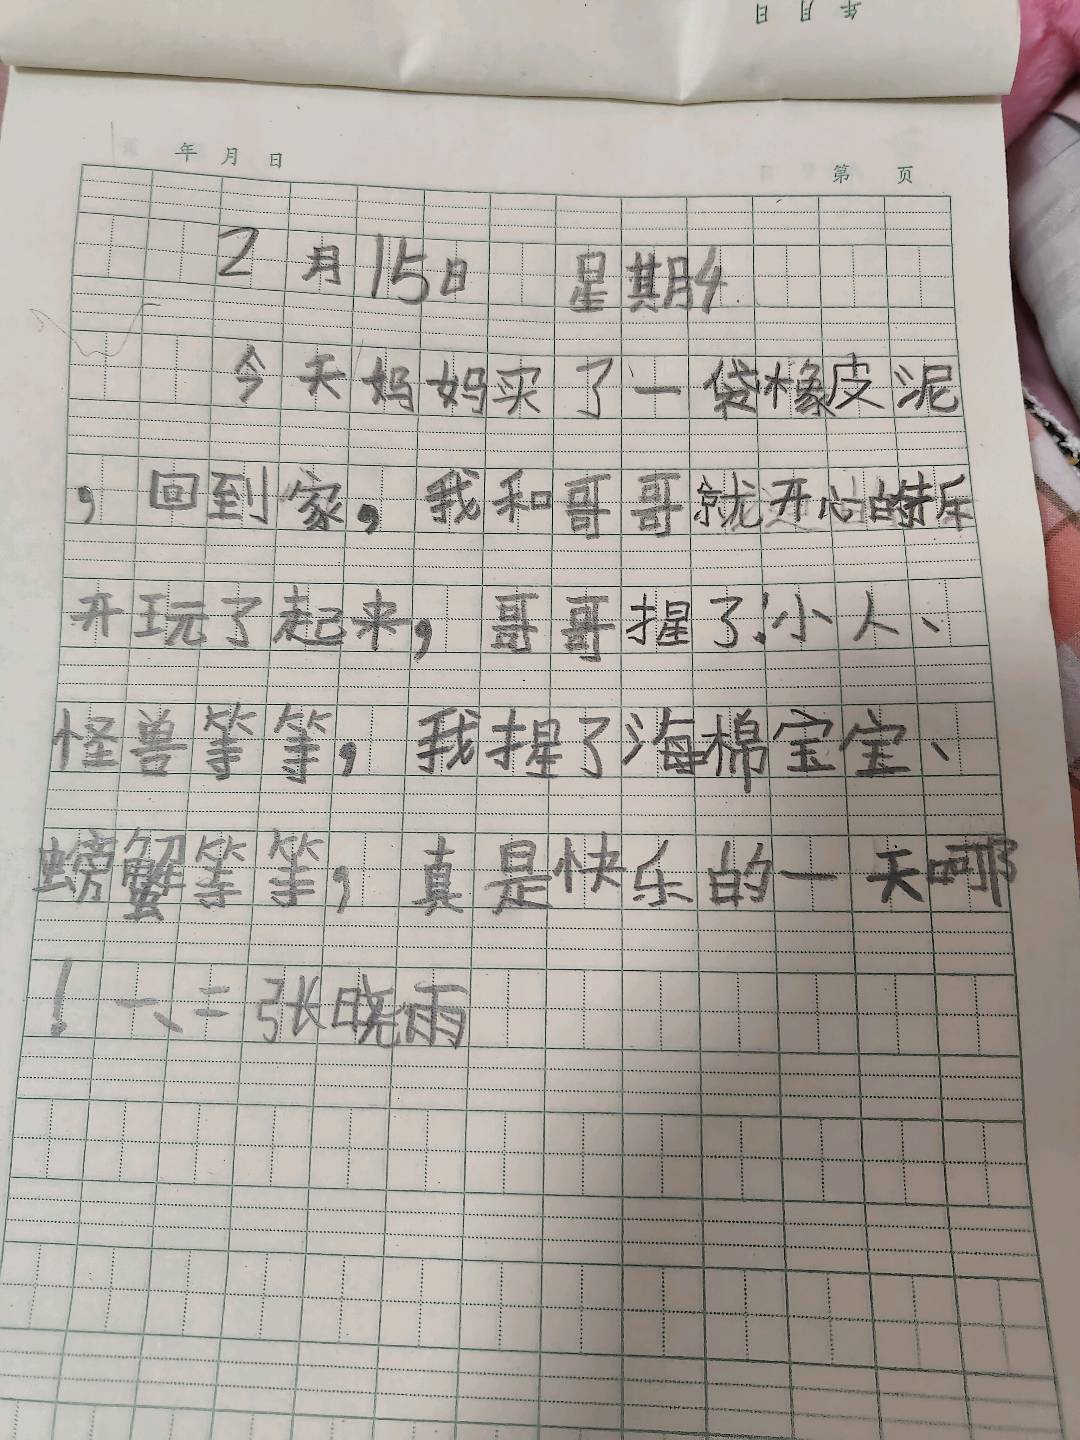 年 月 日
年 月 日 第 页
2月15日 星期4
今天妈妈买了一袋橡皮泥
，回到家，我和哥哥就开心的拆
开玩了起来，哥哥捏了小人、
怪兽等等，我捏了海棉宝宝、
螃蟹等等，真是快乐的一天哪
！一、二张晓雨